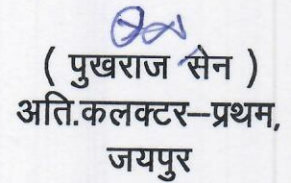 ( पुखराज सेन )
अति.कलक्टर–प्रथम,
जयपुर